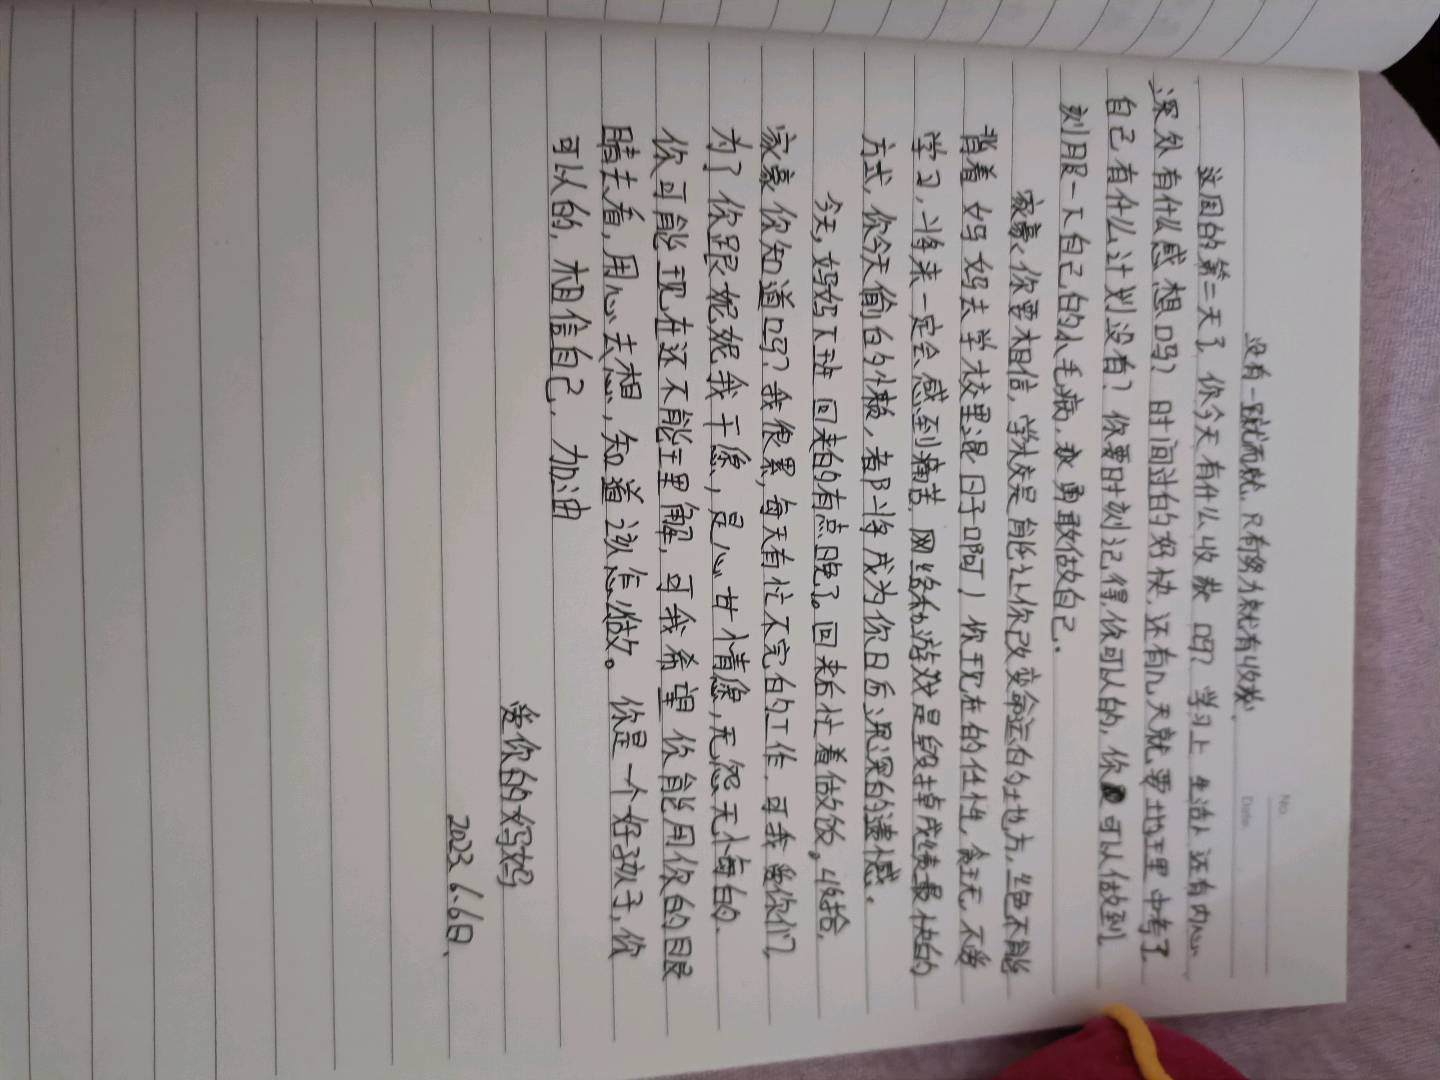 没有一蹴而就，只有努力就有收获。
No.
Date.
这周的第二天了，你今天有什么收获吗？学习上生活上还有内心
深处有什么感想吗？时间过的好快，还有几天就要地理中考了
自己有什么计划没有？你要时刻记得，你可以的，你 可以做到
刻服一下自己的小毛病，敢勇敢做自己。
家豪，你要相信，学校是能让你改变命运的地方，绝不能
背着妈妈去学校里混日子啊！你现在的任性，贪玩，不爱
学习，将来一定会感到痛苦，网络和游戏是毁掉成绩最快的
方式，你今天偷的小懒，都将成为你日后深深的遗憾。
今天，妈妈下班回来的有点晚了。回来后忙着做饭，收拾，
家豪你知道吗？我很累，每天有忙不完的工作，可我爱你们，
为了你跟妮妮我干愿，是心甘情愿，无怨无悔的。
你可能现在还不能理解，可我希望你能用你的眼
睛去看，用心去想，知道该怎做。 你是一个好孩子，你
可以的，相信自己，加油
爱你的妈妈
2023.6.6日、